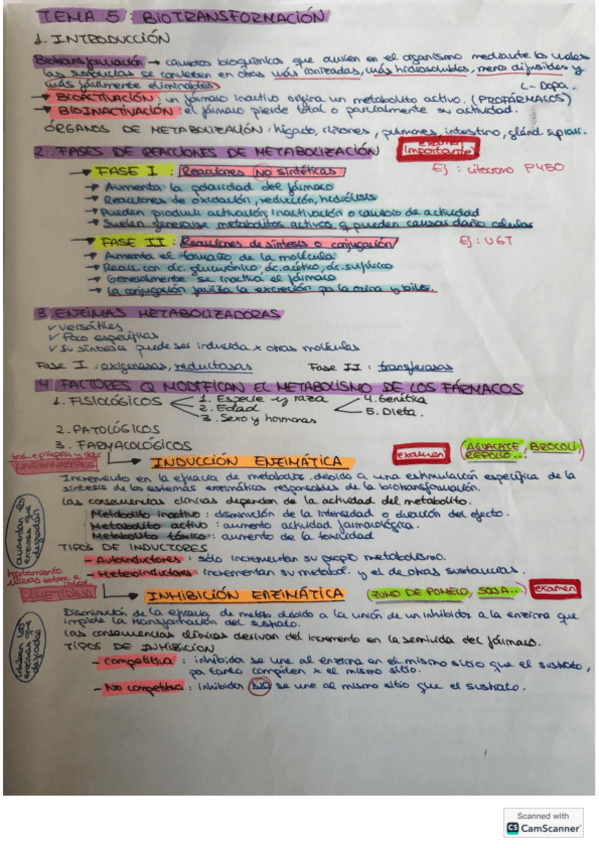 TEMA 5: BIOTRANSFORMACIÓN
1. INTRODUCCIÓN
Biotransformación → cambios bioquímicos que ocurren en el organismo mediante los cuales
las sustancias se convierten en otras más ionizadas, más hidrosolubles, menos difusibles y
más fácilmente eliminables
L-Dopa.
→ BIOACTIVACIÓN: un fármaco inactivo origina un metabolito activo. (PROFÁRMACOS)
→ BIOINACTIVACIÓN: el fármaco pierde total o parcialmente su actividad.
ÓRGANOS DE METABOLIZACIÓN: hígado, riñones, pulmones, intestino, gland. suprarr.
2. FASES DE REACCIONES DE METABOLIZACIÓN
examen
importante
→ FASE I: Reacciones NO sintéticas
Ej: citocromo P450
→ Aumenta la polaridad del fármaco
→ Reacciones de oxidación, reducción, hidrólisis
→ Pueden producir activación, inactivación o cambio de actividad
→ Suelen generarse metabolitos activos y pueden causar daño celular
→ FASE II: Reacciones de síntesis o conjugación
Ej: UGT
→ Aumenta el tamaño de la molécula
→ Reacc. con ác. glucurónico, ác. acético, ác. sulfúrico
→ Generalmente se inactiva el fármaco
→ La conjugación facilita la excreción pa la orina y bilis.
3. ENZIMAS METABOLIZADORAS
✓ versátiles
✓ Poco específicas
✓ Su síntesis puede ser inducida x otras moléculas
Fase I: oxigenasas, reductasas
Fase II: transferasas
4. FACTORES Q MODIFICAN EL METABOLISMO DE LOS FÁRMACOS
1. FISIOLÓGICOS
1. Especie y raza
2. Edad
3. Sexo y hormonas
4. Genética
5. Dieta.
2. PATOLÓGICOS
3. FARMACOLÓGICOS
→ INDUCCIÓN ENZIMÁTICA
examen
AGUACATE, BROCOLI
REPOLLO...
Incremento en la eficacia de metabolizc. debido a una estimulación específica de la
síntesis de los sistemas enzimáticos responsables de la biotransformación.
Las consecuencias clínicas dependen de la actividad del metabolito.
Metabolito inactivo: disminución de la intensidad o duración del efecto.
Metabolito activo: aumento actividad farmacológica.
Metabolito tóxico: aumento de la toxicidad
TIPOS DE INDUCTORES
→ Autoinductores: sólo incrementan su propio metabolismo.
→ Heteroinductores: incrementan su metabol. y el de otras sustancias.
→ INHIBICIÓN ENZIMÁTICA
ZUMO DE POMELO, SOJA...
examen
Disminución de la eficacia de metab. debido a la unión de un inhibidor a la enzima que
impide la transformación del sustrato.
Las consecuencias clínicas derivan del incremento en la semivida del fármaco.
TIPOS DE INHIBICIÓN
→ Competitiva: inhibidor se une al enzima en el mismo sitio que el sustrato,
pa tanto compiten x el mismo sitio.
→ No competitiva: inhibidor NO se une al mismo sitio que el sustrato.
Scanned with
CS CamScanner